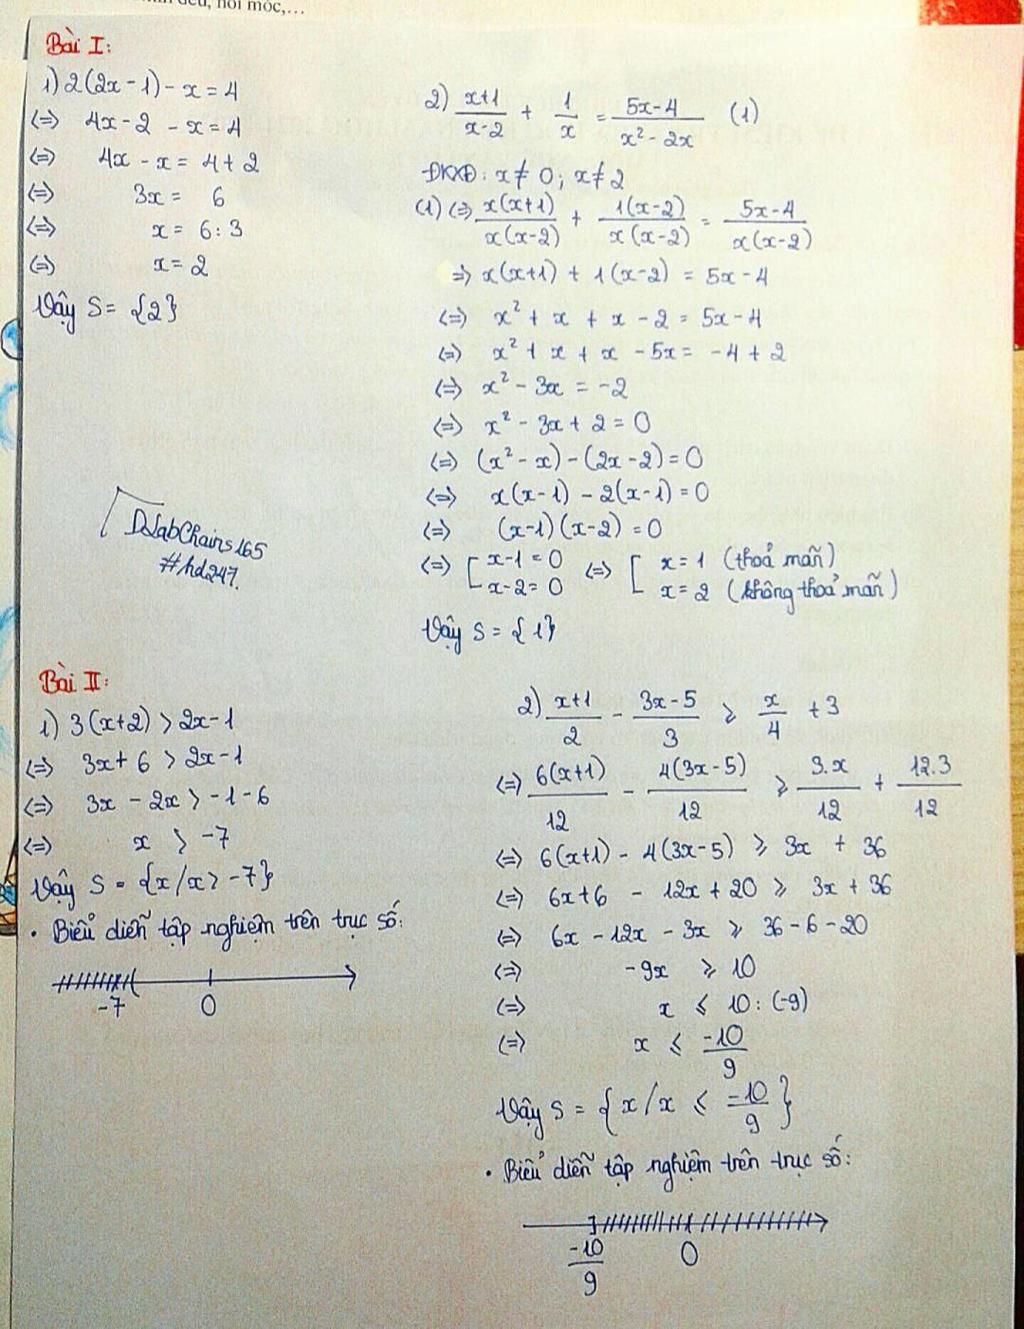 đều, nối móc,...
Bài I:
1) 2(2x-1) - x = 4
<=> 4x - 2 - x = 4
<=> 4x - x = 4 + 2
<=> 3x = 6
<=> x = 6 : 3
<=> x = 2
Vậy S = {2}
2) \frac{x+1}{x-2} + \frac{1}{x} = \frac{5x-4}{x² - 2x} (1)
ĐKXĐ: x ≠ 0; x ≠ 2
(1) <=> \frac{x(x+1)}{x(x-2)} + \frac{1(x-2)}{x(x-2)} = \frac{5x-4}{x(x-2)}
=> x(x+1) + 1(x-2) = 5x - 4
<=> x² + x + x - 2 = 5x - 4
<=> x² + x + x - 5x = -4 + 2
<=> x² - 3x = -2
<=> x² - 3x + 2 = 0
<=> (x² - x) - (2x - 2) = 0
<=> x(x-1) - 2(x-1) = 0
<=> (x-1)(x-2) = 0
<=> [ x-1 = 0 <=> [ x = 1 (thoả mãn)
x-2 = 0 x = 2 (không thoả mãn)
Vậy S = {1}
#hd247.
Bài II:
1) 3(x+2) > 2x - 1
<=> 3x + 6 > 2x - 1
<=> 3x - 2x > -1 - 6
<=> x > -7
Vậy S = {x/x > -7}
• Biểu diễn tập nghiệm trên trục số:
-7 0
2) \frac{x+1}{2} - \frac{3x-5}{3} ⩾ \frac{x}{4} + 3
<=> \frac{6(x+1)}{12} - \frac{4(3x-5)}{12} ⩾ \frac{3.x}{12} + \frac{12.3}{12}
<=> 6(x+1) - 4(3x-5) ⩾ 3x + 36
<=> 6x+6 - 12x + 20 ⩾ 3x + 36
<=> 6x - 12x - 3x ⩾ 36 - 6 - 20
<=> -9x ⩾ 10
<=> x ⩽ 10 : (-9)
<=> x ⩽ \frac{-10}{9}
Vậy S = {x/x ⩽ \frac{-10}{9}}
• Biểu diễn tập nghiệm trên trục số:
\frac{-10}{9} 0